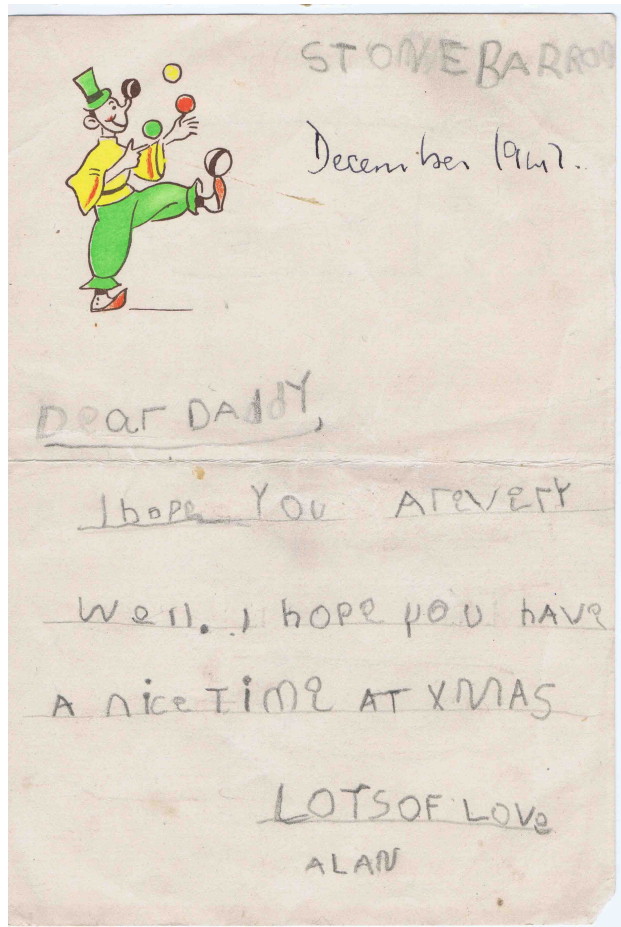 STONEBARROW
December 1947.
Dear DAddY,
I hope You Are very
Well. I hope you hAve
A nice Time AT XMAS
LOTS OF LOVe
ALAN